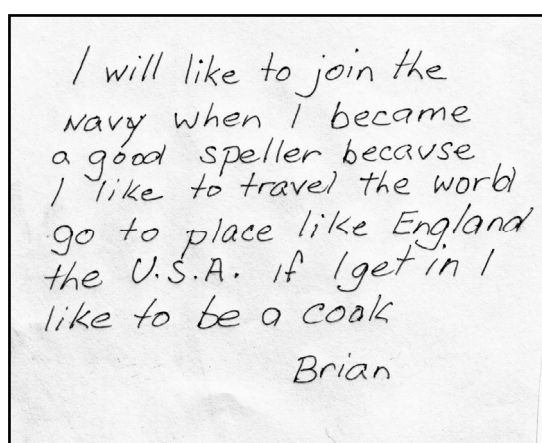 I will like to join the
Navy when I became
a good speller because
I like to travel the world
go to place like England
the U.S.A. If I get in I
like to be a cook
Brian